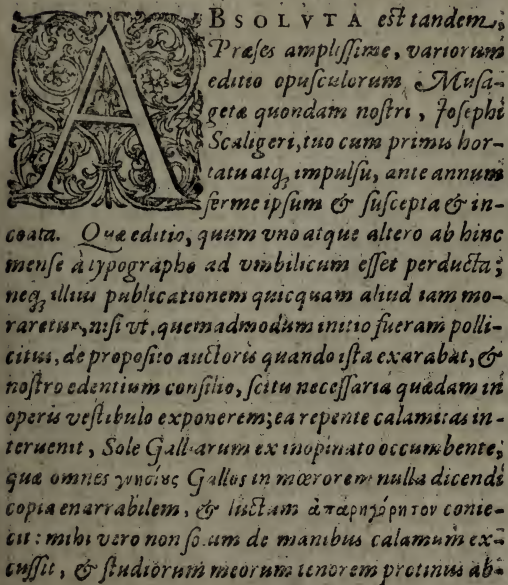 ABSOLVTA est tandem,
Præses amplissime, variorum
editio opusculorum Musa-
getæ quondam nostri, Iosephi
Scaligeri, tuo cum primis hor-
tatu atq; impulsu, ante annum
ferme ipsum & suscepta & in-
coata. Quæ editio, quum vno atque altero ab hinc
mense à typographo ad vmbilicum esset perducta;
neq; illius publicationem quicquam aliud iam mo-
raretur, nisi vt, quemadmodum initio fueram polli-
citus, de proposito auctoris quando ista exarabat, &
nostro edentium consilio, scitu necessaria quædam in
operis vestibulo exponerem; ea repente calamitas in-
teruenit, Sole Galliarum ex inopinato occumbente;
quæ omnes γνησίως Gallos in mœrorem nulla dicendi
copia enarrabilem, & luctum ἀπαρηγόρητον conie-
cit: mihi vero non solum de manibus calamum ex-
cussit, & studiorum meorum tenorem protinus ab-